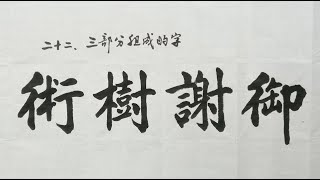 二十二、三部分组成的字
術樹謝御